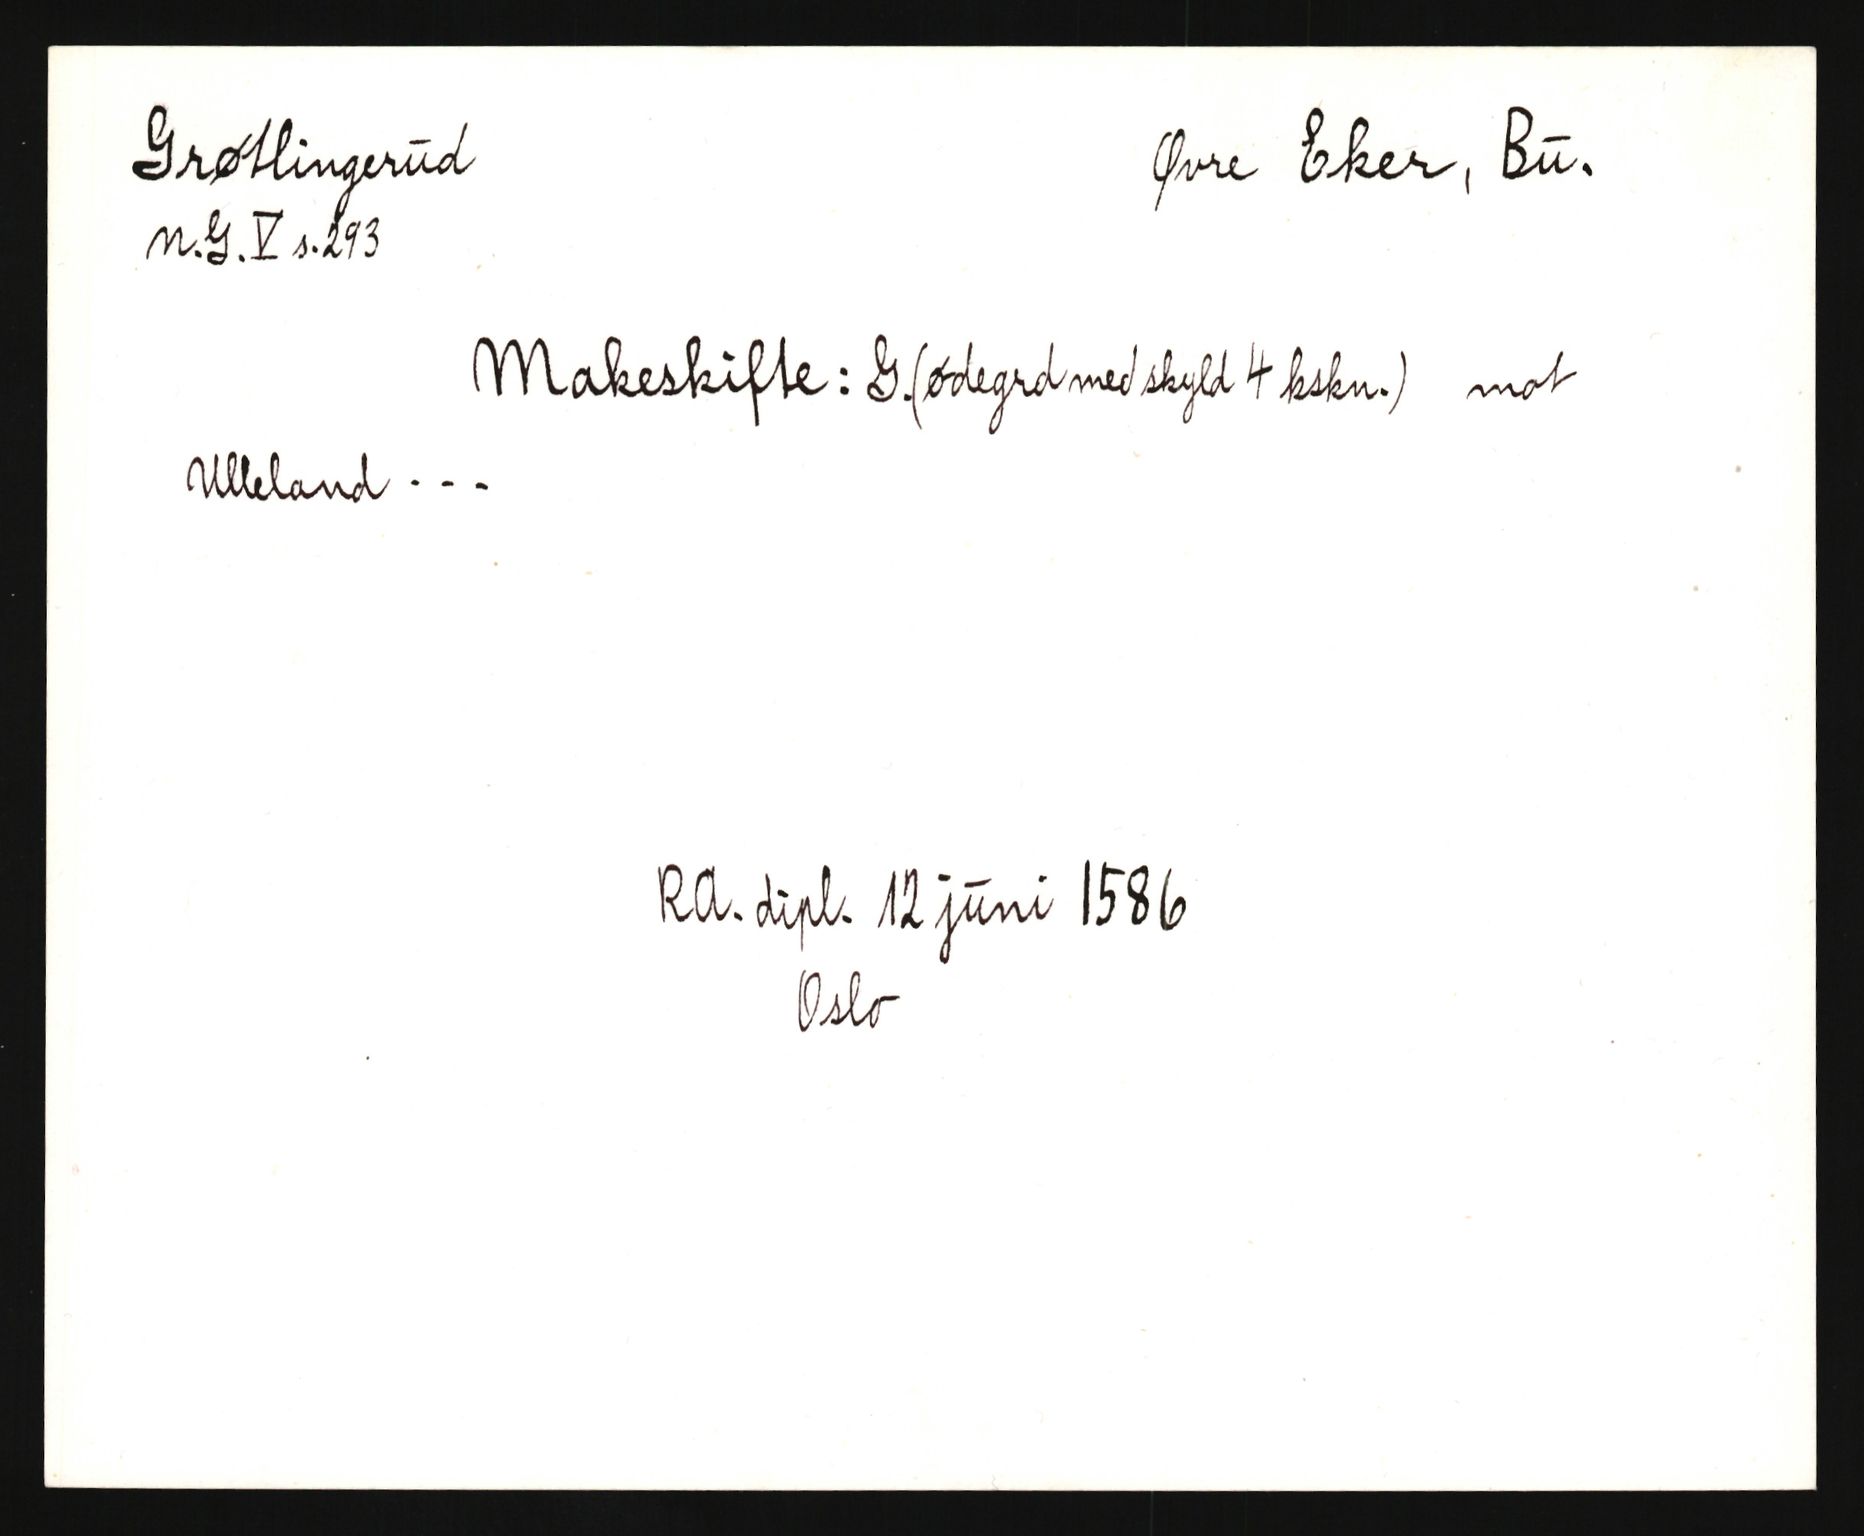 Grøtlingerud
Øvre Eker, Bu.
N.G. V s. 293
Makeskifte: G. (ødegrd med skyld 4 kskn.) mot
Ulleland - - -
RA. dipl. 12 juni 1586
Oslo